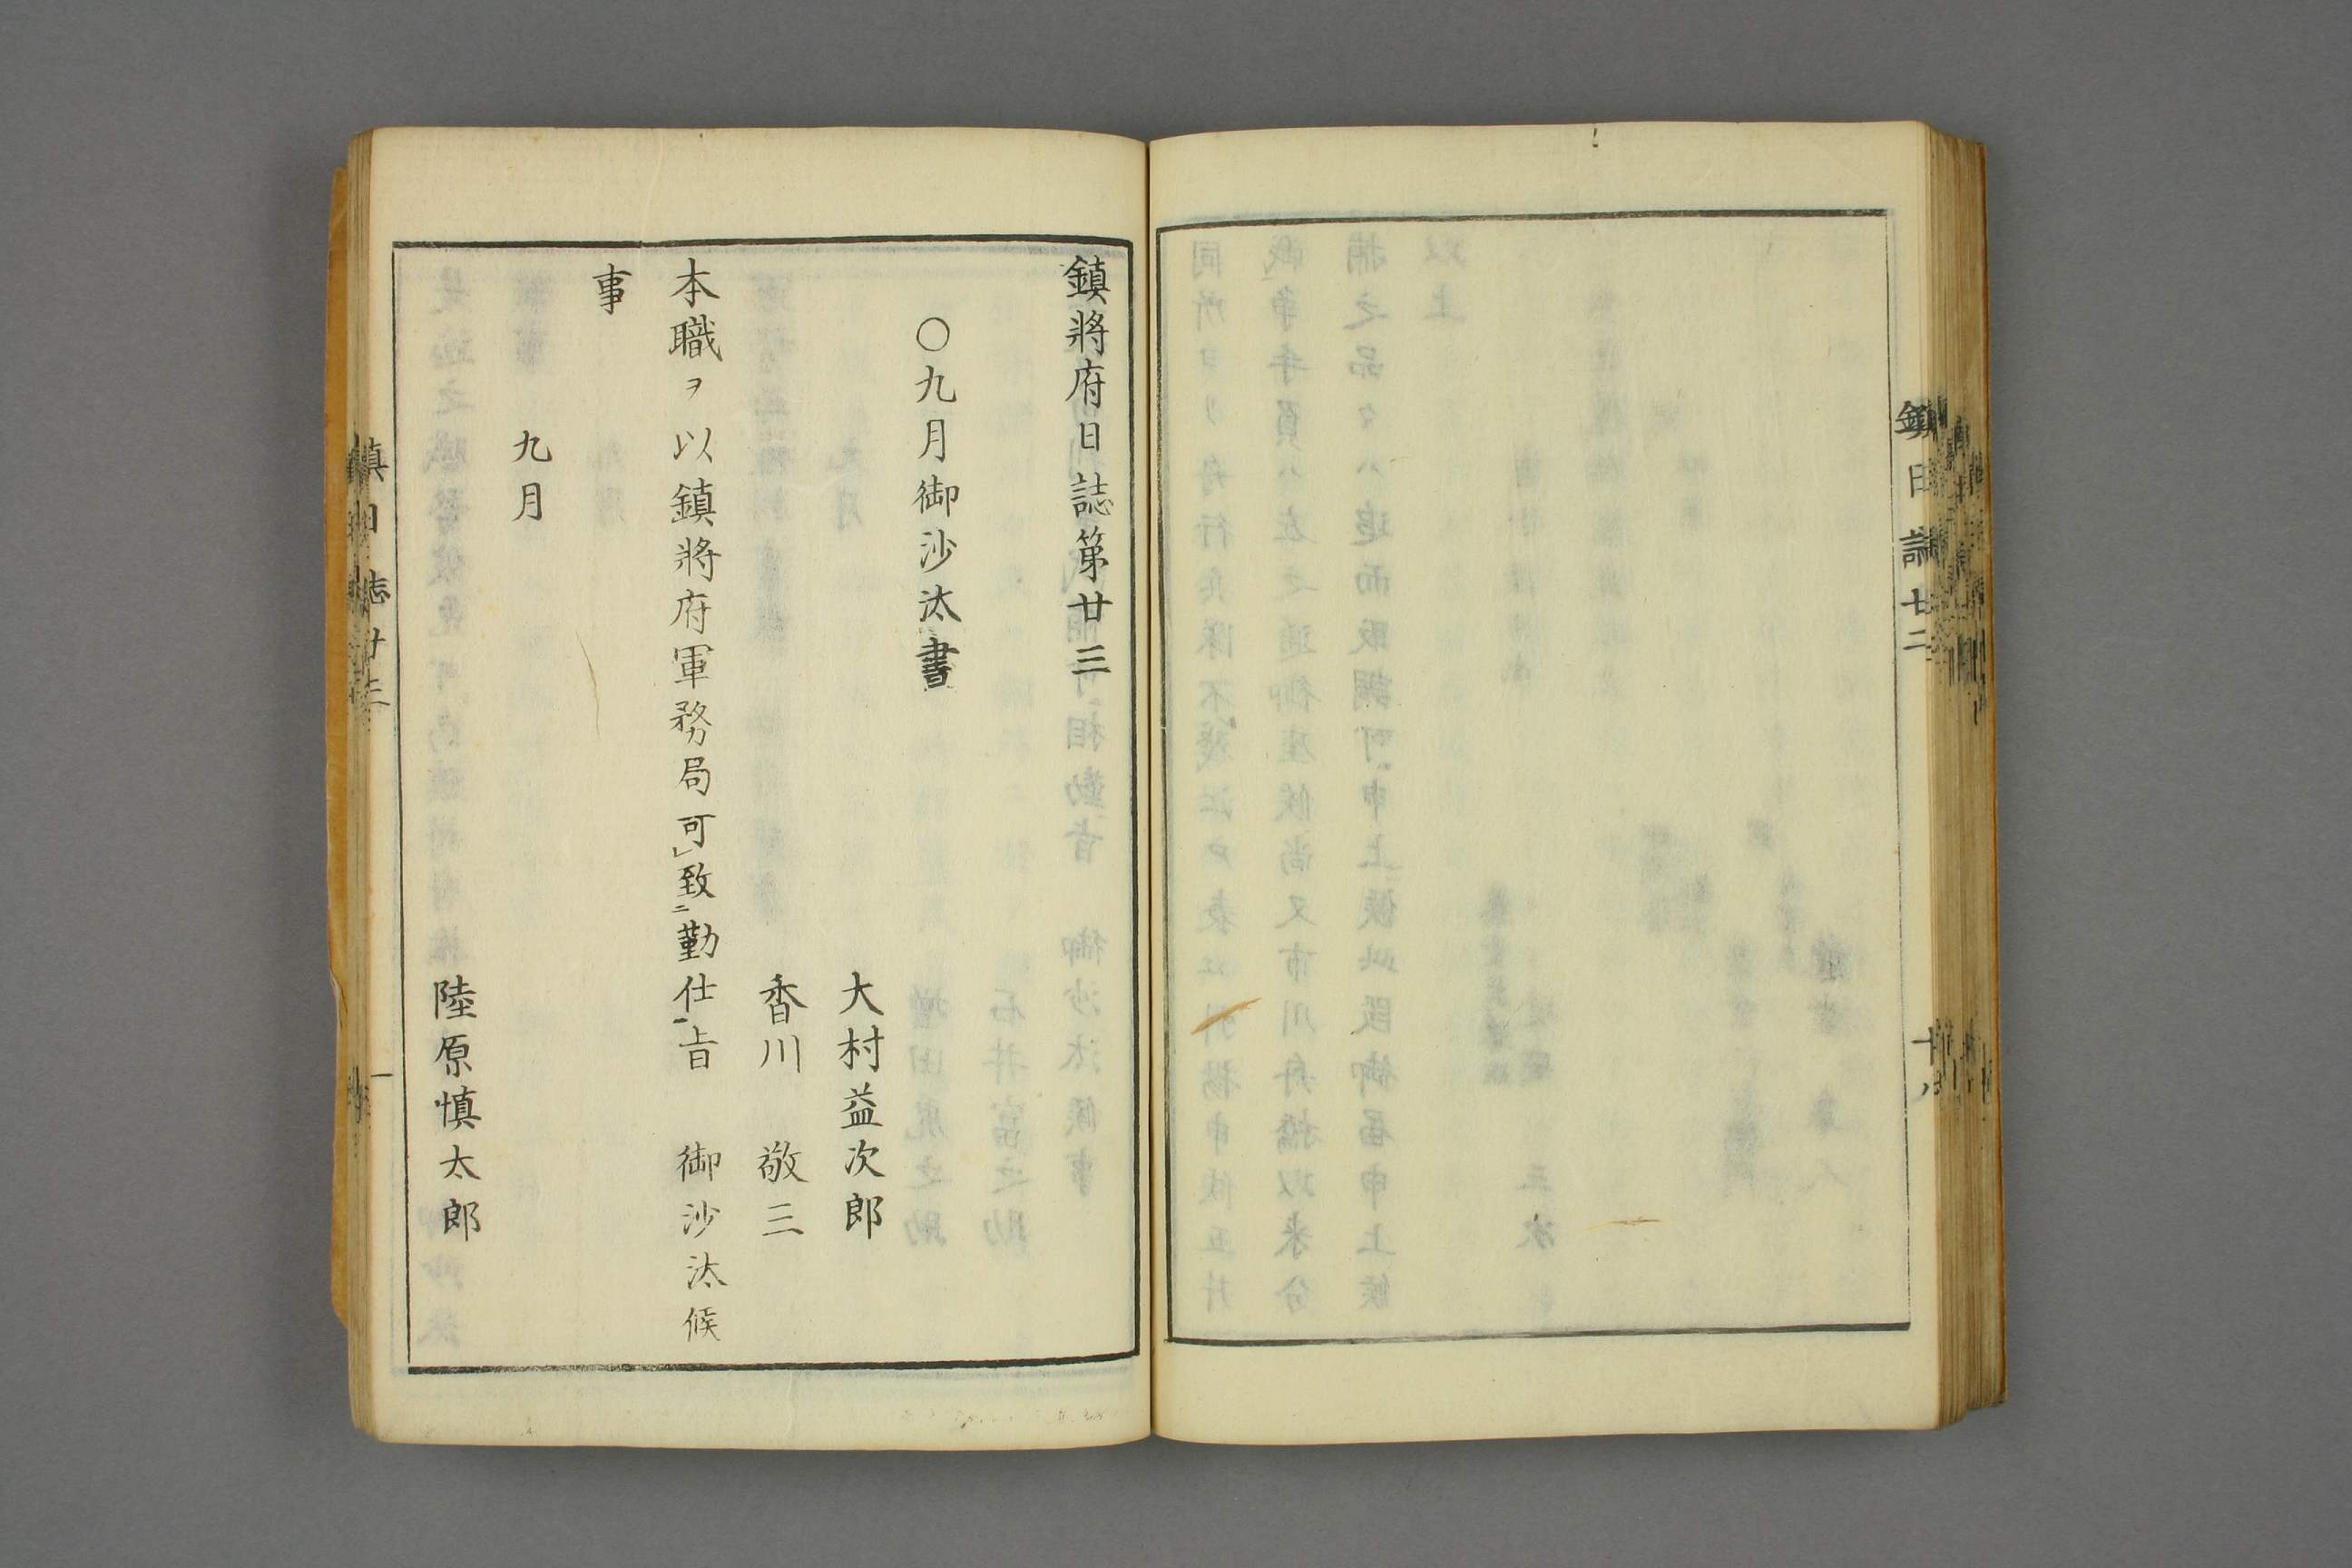 鎮日誌廿二
十八
鎮將府日誌第廿三
〇九月御沙汰書
大村益次郎
香川　敬三
本職ヲ以鎮將府軍務局可レ致二勤仕一旨　御沙汰候
事
九月
陸原慎太郎
鎮日誌廿三
一